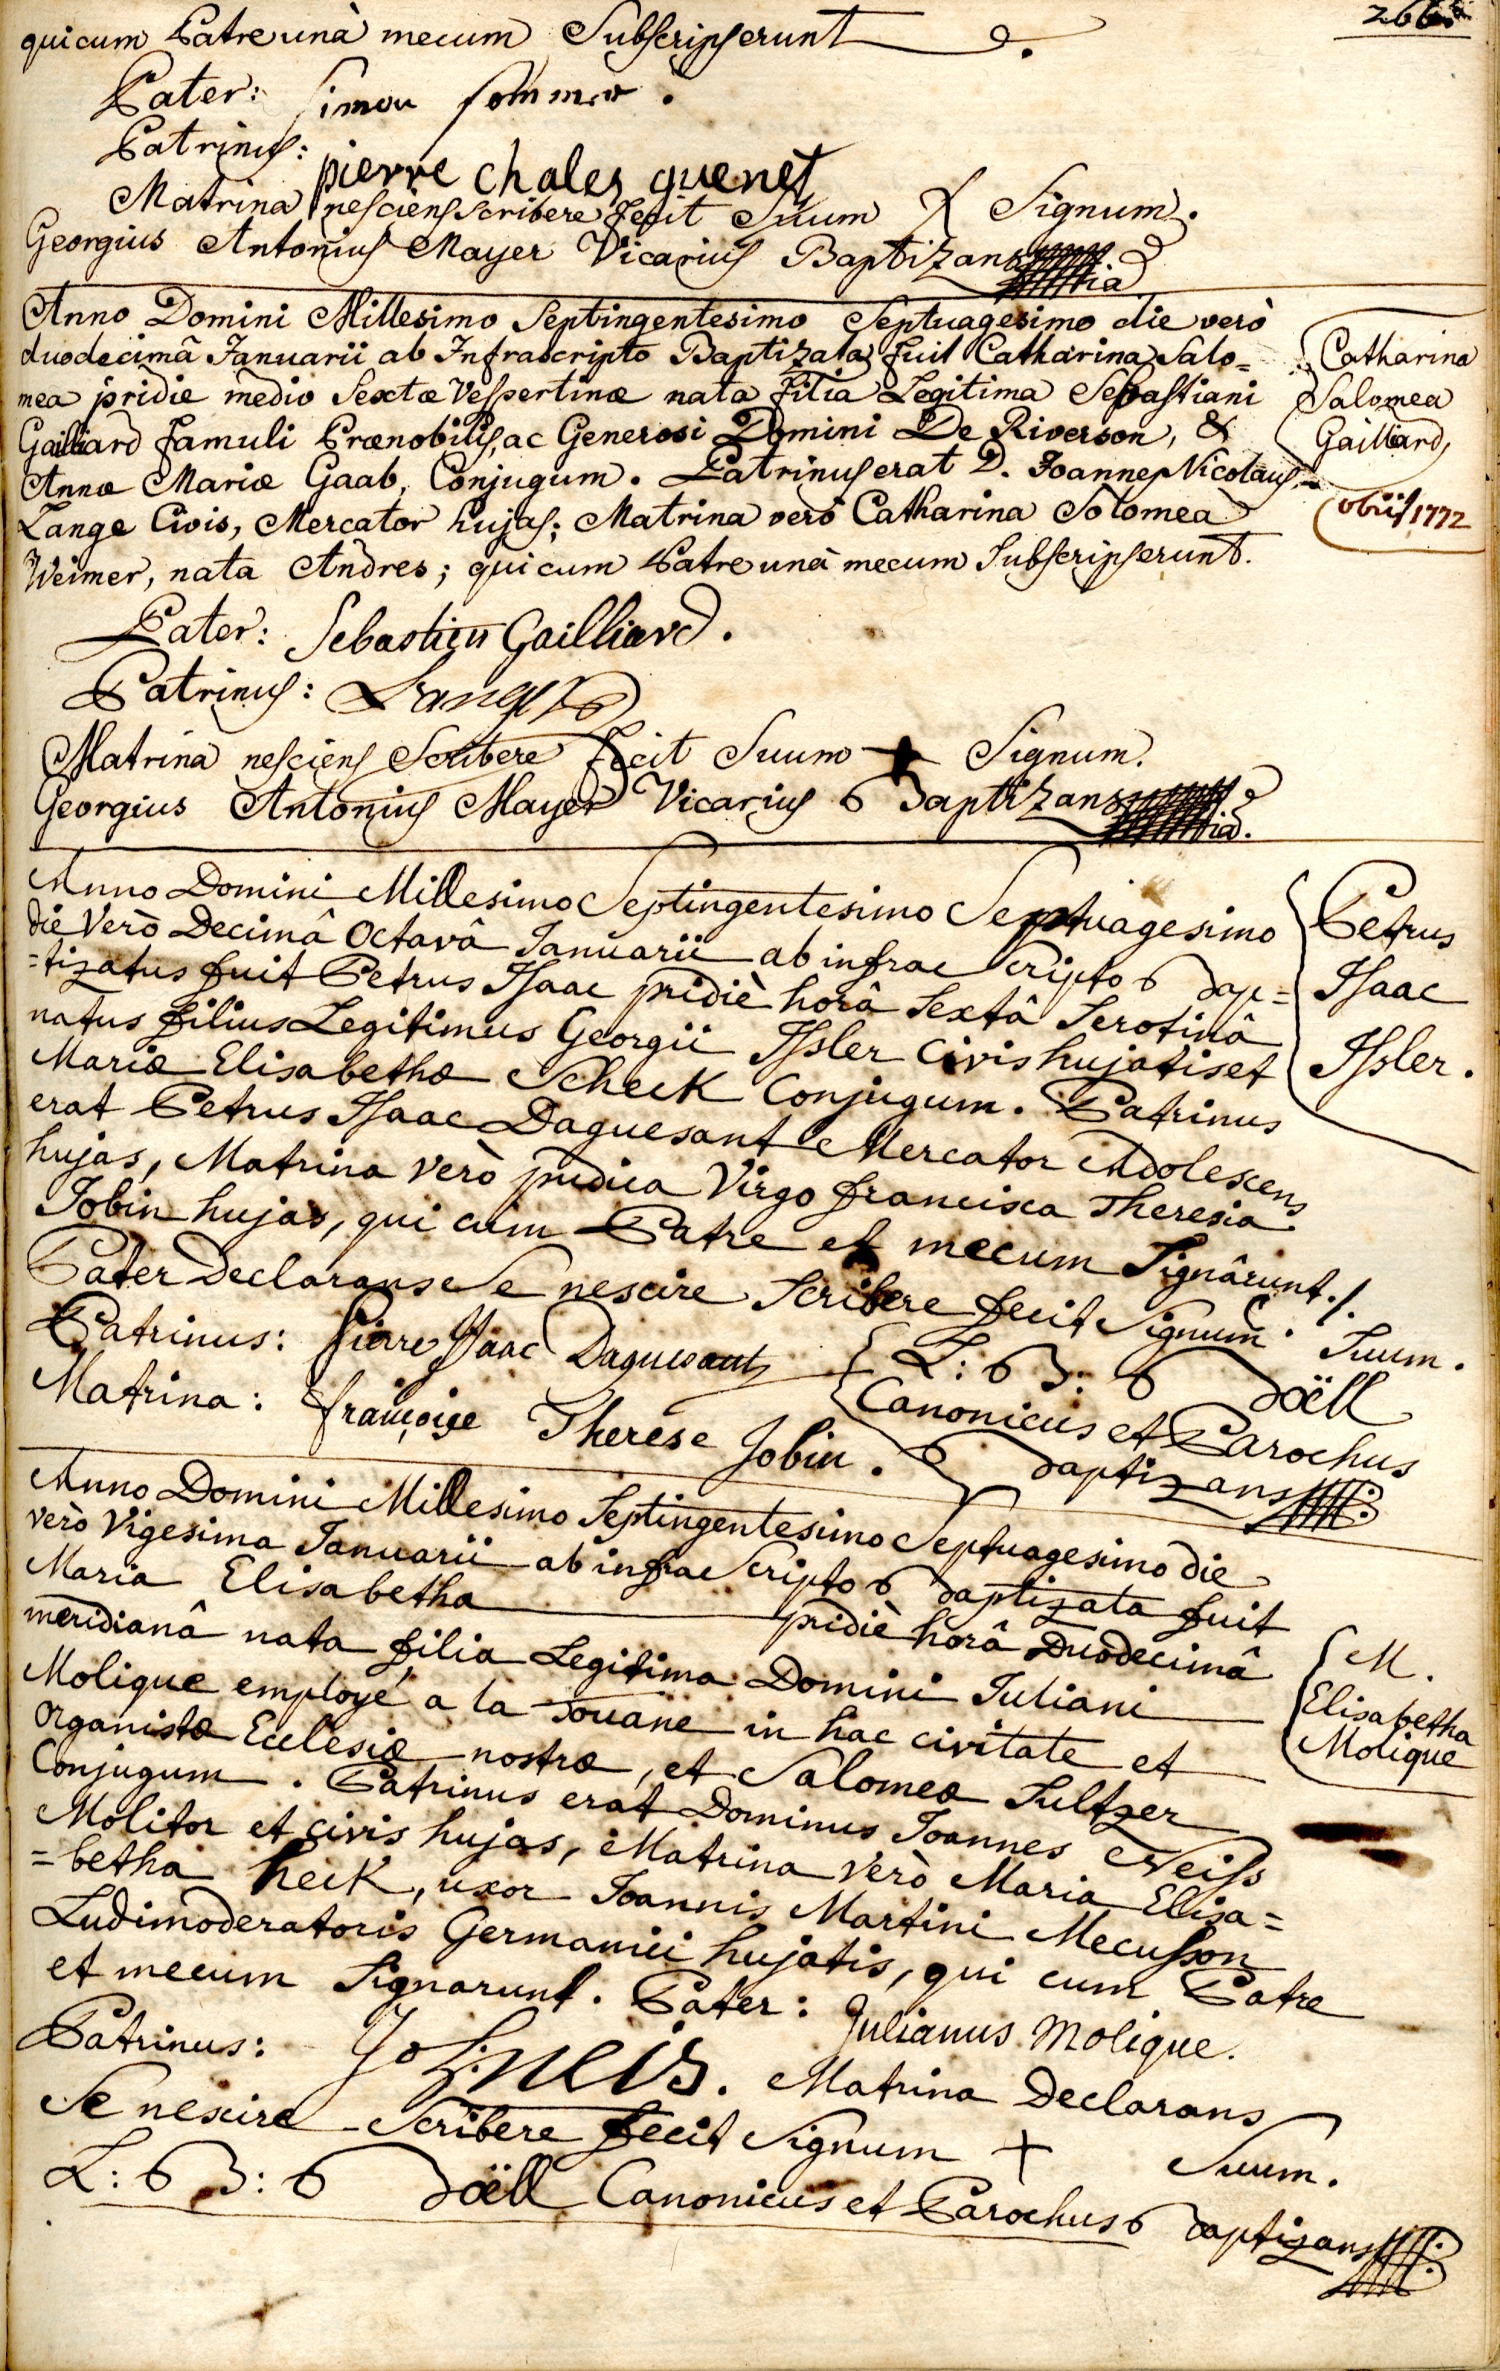 266.
qui cum Patre unà mecum Subscripserunt
Pater: simon sommer.
Patrinus: pierre chales quenet
Matrina nesciens scribere fecit Suum X Signum.
Georgius Antonius Mayer Vicarius Baptizans
Anno Domini Millesimo Septingentesimo Septuagesimo die verò
duodecimâ Januarii ab Infrascripto Baptizata fuit Catharina Salo=
mea pridie medio Sextæ Vespertinæ nata filia Legitima Sebastiani
Gailliard famuli Prænobilis, ac Generosi Domini De Riverson, &
Annæ Mariæ Gaab, Conjugum. Patrinus erat D. Joannes Nicolaus
Lange Civis, Mercator hujas; Matrina verò Catharina Solomea
Weimer, nata Andres; qui cum Patre unà mecum Subscripserunt.
Catharina
Salomea
Gailliard,
obiit 1772
Pater: Sebastien Gailliard.
Patrinus: Lange
Matrina nesciens Scribere fecit Suum + Signum.
Georgius Antonius Mayer Vicarius Baptizans
Anno Domini Millesimo Septingentesimo Septuagesimo
die Verò Decimâ Octavâ Januarii ab infra Scripto Bap=
=tizatus fuit Petrus Isaac pridiè horâ Sextâ Serotinâ
natus filius Legitimus Georgii Issler Civis hujatis et
Mariæ Elisabethæ Scheck Conjugum. Patrinus
erat Petrus Isaac Daguesant Mercator Adolescens
hujas, Matrina verò pudica Virgo francisca Theresia
Jobin hujas, qui cum Patre et mecum Signârunt./.
Petrus
Isaac
Issler.
Pater Declarans Se nescire Scribere fecit Signum Suum.
Patrinus: Pierre Isaac Daguesant
Matrina: françoise Therese Jobin.
L: B: Böell
Canonicus et Parochus
Baptizans
Anno Domini Millesimo Septingentesimo Septuagesimo die
verò Vigesima Januarii ab infra Scripto Baptizata fuit
Maria Elisabetha pridiè horâ Duodecimâ
meridianâ nata filia Legitima Domini Juliani
Molique employé a la Douane in hac civitate et
Organistæ Ecclesiæ nostræ, et Salomeæ Sultzer
Conjugum. Patrinus erat Dominus Joannes Neiss
Molitor et civis hujas, Matrina Verò Maria Elisa=
=betha heck, uxor Joannis Martini Mecusson
Ludimoderatoris Germanici hujatis, qui cum Patre
et mecum Signarunt. Pater: Julianus Molique.
M.
Elisabetha
Molique
Patrinus: Joh: neis. Matrina Declarans
Se nescire Scribere fecit Signum + Suum.
L: B: Böell Canonicus et Parochus Baptizans